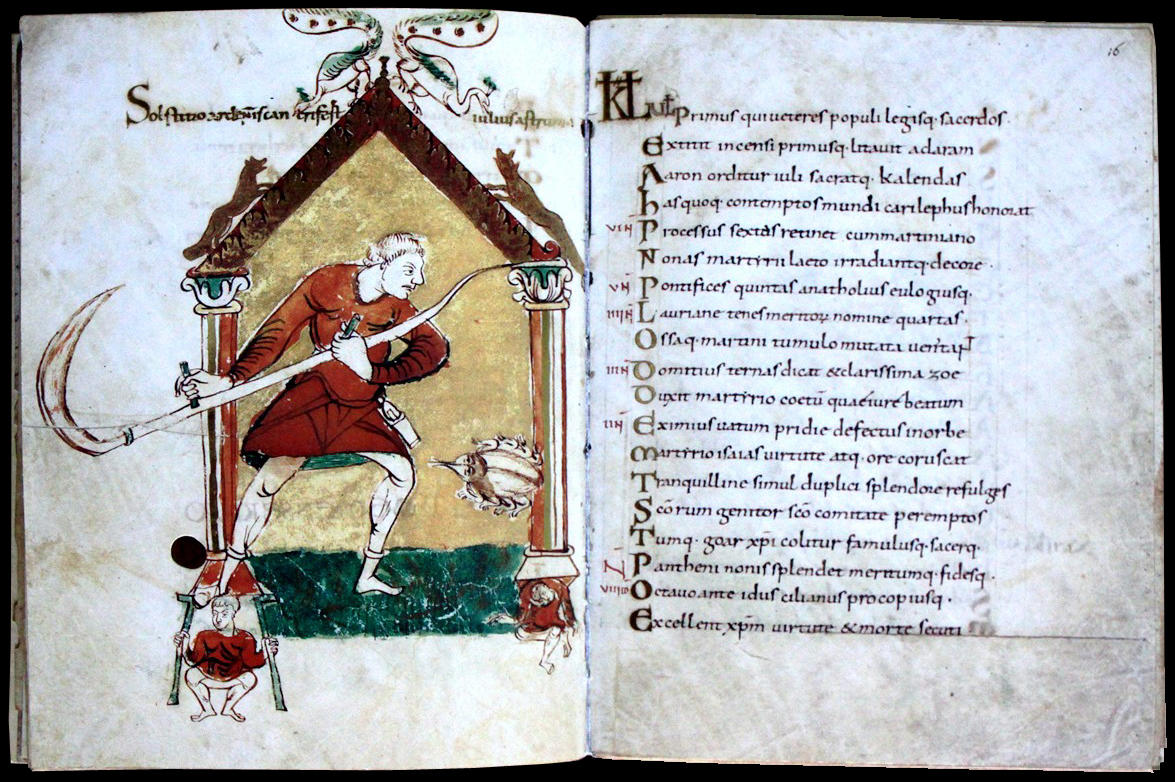 Solstitio ardentis cancri fert
iulius astrum
16
KL IUL Primus qui ueteres populi legisq· sacerdos·
Extitit incensi primusq· litauit ad aram
Aaron orditur iuli sacratq· kalendas
hasquoq· contemptos mundi carilephus honorat
VIN Processus sextas retinet cum martiniano
Nonas martyrii laeto irradiantq· decore·
VN Pontifices quintas anatholius eulogiusq·
IIIIN Lauriane tenes meritoꝝ nomine quartas·
Ossaq· martini tumulo mutata
IIIN Domitius ternas dicat & clarissima zoe
Duxit martyrio coetū quae iure beatum
IIN Eximius uatum pridie defectus in orbe
martyrio isaias uirtute atq· ore coruscat
Tranquilline simul duplici splendore refulges
Scōrum genitor scō comitate peremptos
Tumq· goar xp̄i colitur famulusq· sacerq·
N Pantheni nonis splendet meritumq· fidesq·
VIIIID Octauo ante idus cilianus procopiusq·
Excellent xp̄m uirtute & morte secuti